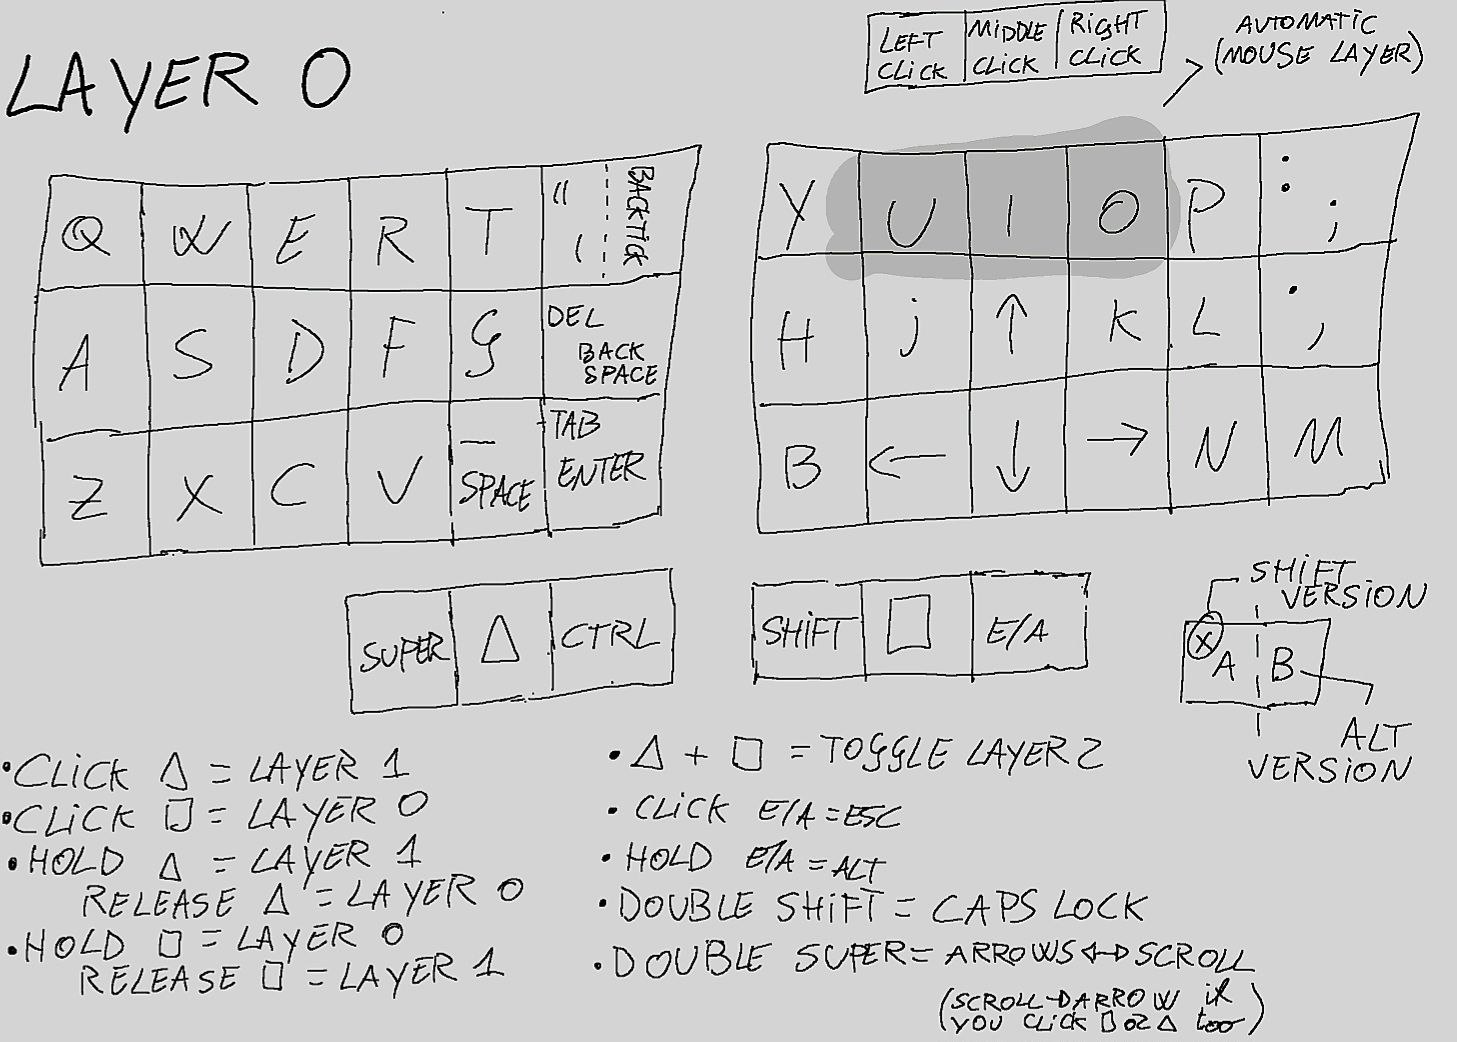 LAYER 0
LEFT CLICK
MIDDLE CLICK
RIGHT CLICK
AUTOMATIC
(MOUSE LAYER)
Q W E R T " ' BACKTICK
A S D F G DEL BACK SPACE
Z X C V _ SPACE TAB ENTER
Y U I O P : ;
H j ↑ K L . ,
B ← ↓ → N M
SUPER △ CTRL
SHIFT □ E/A
SHIFT
VERSION
X A B
ALT
VERSION
• CLICK △ = LAYER 1
• CLICK □ = LAYER 0
• HOLD △ = LAYER 1
RELEASE △ = LAYER 0
• HOLD □ = LAYER 0
RELEASE □ = LAYER 1
• △ + □ = TOGGLE LAYER 2
• CLICK E/A = ESC
• HOLD E/A = ALT
• DOUBLE SHIFT = CAPS LOCK
• DOUBLE SUPER = ARROWS ↔ SCROLL
(SCROLL → ARROW if
YOU CLICK □ OR △ too)